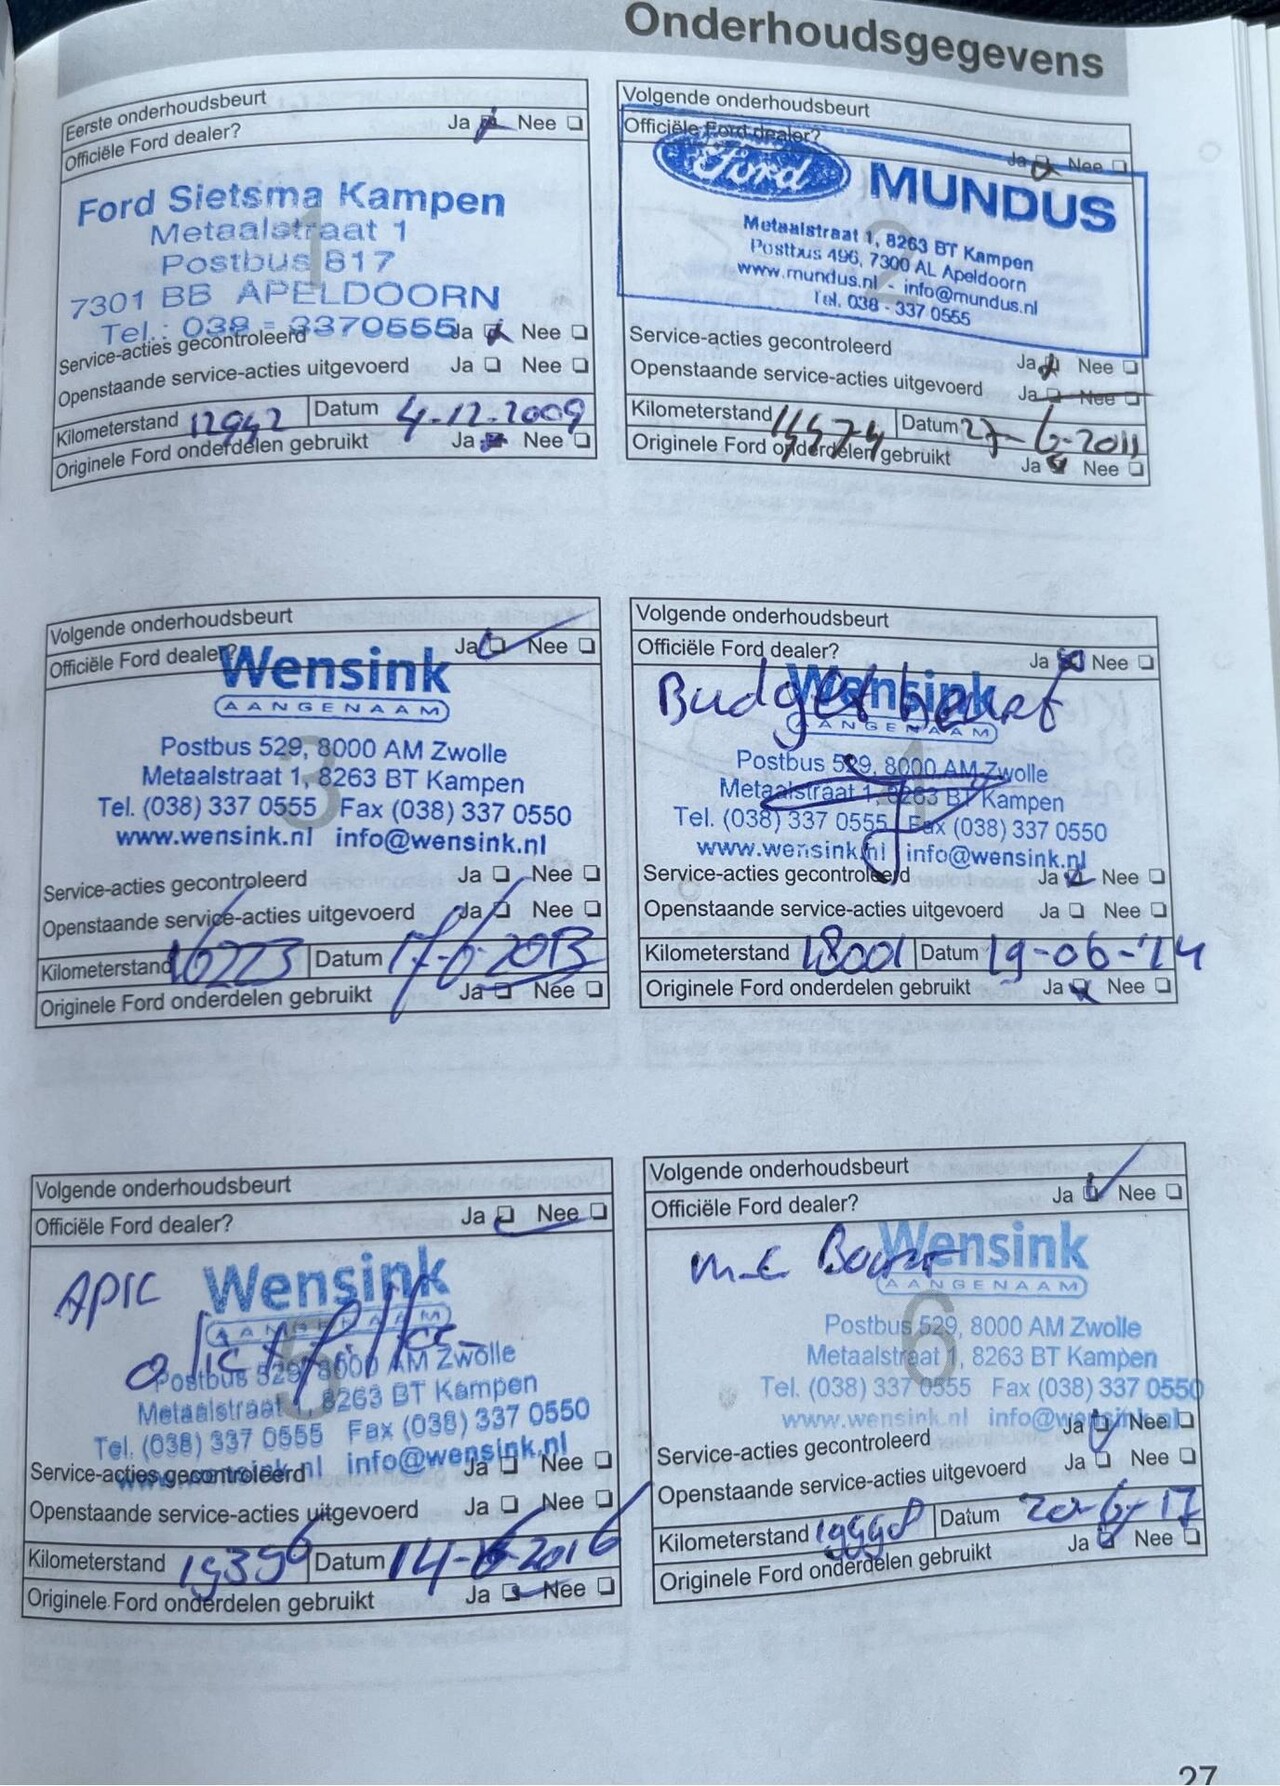 Onderhoudsgegevens
Eerste onderhoudsbeurt
Officiële Ford dealer? Ja Nee
1
Ford Sietsma Kampen
Metaalstraat 1
Postbus 817
7301 BB APELDOORN
Tel.: 038 - 3370555
Service-acties gecontroleerd Ja Nee
Openstaande service-acties uitgevoerd Ja Nee
Kilometerstand 12942 Datum 4-12-2009
Originele Ford onderdelen gebruikt Ja Nee
Volgende onderhoudsbeurt
Officiële Ford dealer? Ja Nee
2
Ford MUNDUS
Metaalstraat 1, 8263 BT Kampen
Postbus 496, 7300 AL Apeldoorn
www.mundus.nl - info@mundus.nl
Tel. 038 - 337 0555
Service-acties gecontroleerd Ja Nee
Openstaande service-acties uitgevoerd Ja Nee
Kilometerstand Datum 27-6-2011
Originele Ford onderdelen gebruikt Ja Nee
Volgende onderhoudsbeurt
Officiële Ford dealer? Ja Nee
3
Wensink
AANGENAAM
Postbus 529, 8000 AM Zwolle
Metaalstraat 1, 8263 BT Kampen
Tel. (038) 337 0555 Fax (038) 337 0550
www.wensink.nl info@wensink.nl
Service-acties gecontroleerd Ja Nee
Openstaande service-acties uitgevoerd Ja Nee
Kilometerstand 16223 Datum 17-6-2013
Originele Ford onderdelen gebruikt Ja Nee
Volgende onderhoudsbeurt
Officiële Ford dealer? Ja Nee
4
Wensink
Budget beurt
AANGENAAM
Postbus 529, 8000 AM Zwolle
Metaalstraat 1, 8263 BT Kampen
Tel. (038) 337 0555 Fax (038) 337 0550
www.wensink.nl info@wensink.nl
Service-acties gecontroleerd Ja Nee
Openstaande service-acties uitgevoerd Ja Nee
Kilometerstand 18001 Datum 19-06-'14
Originele Ford onderdelen gebruikt Ja Nee
Volgende onderhoudsbeurt
Officiële Ford dealer? Ja Nee
5
APK Wensink
AANGENAAM
Postbus 529, 8000 AM Zwolle
Metaalstraat 1, 8263 BT Kampen
Tel. (038) 337 0555 Fax (038) 337 0550
www.wensink.nl info@wensink.nl
Service-acties gecontroleerd Ja Nee
Openstaande service-acties uitgevoerd Ja Nee
Kilometerstand 19396 Datum 14-6-2016
Originele Ford onderdelen gebruikt Ja Nee
Volgende onderhoudsbeurt
Officiële Ford dealer? Ja Nee
6
Wensink
Beurt
AANGENAAM
Postbus 529, 8000 AM Zwolle
Metaalstraat 1, 8263 BT Kampen
Tel. (038) 337 0555 Fax (038) 337 0550
www.wensink.nl info@wensink.nl
Service-acties gecontroleerd Ja Nee
Openstaande service-acties uitgevoerd Ja Nee
Kilometerstand 19998 Datum 20-6-17
Originele Ford onderdelen gebruikt Ja Nee
27